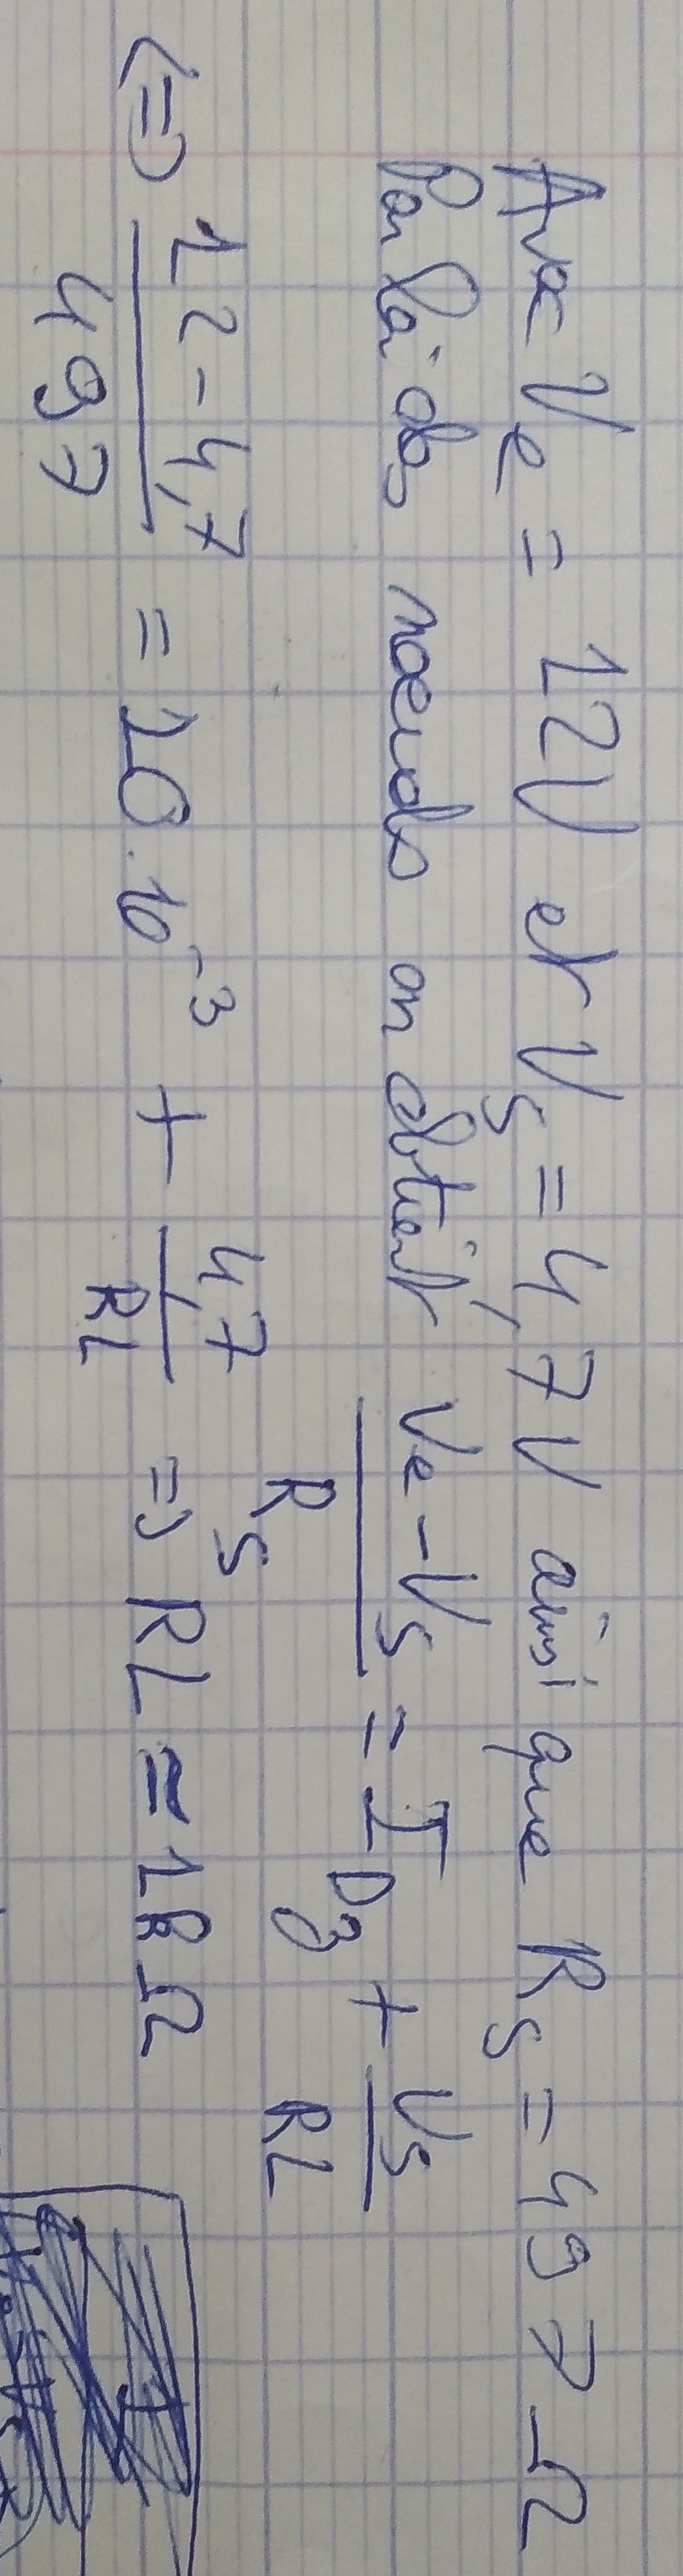 Avec Ve = 12V et Vs = 4,7V ainsi que Rs = 497 Ω
Par loi des noeuds on obtient (Ve - Vs)/Rs = I_Dz + Vs/RL
<=> (12 - 4,7)/497 = 10.10^-3 + 4,7/RL => RL ≃ 1kΩ